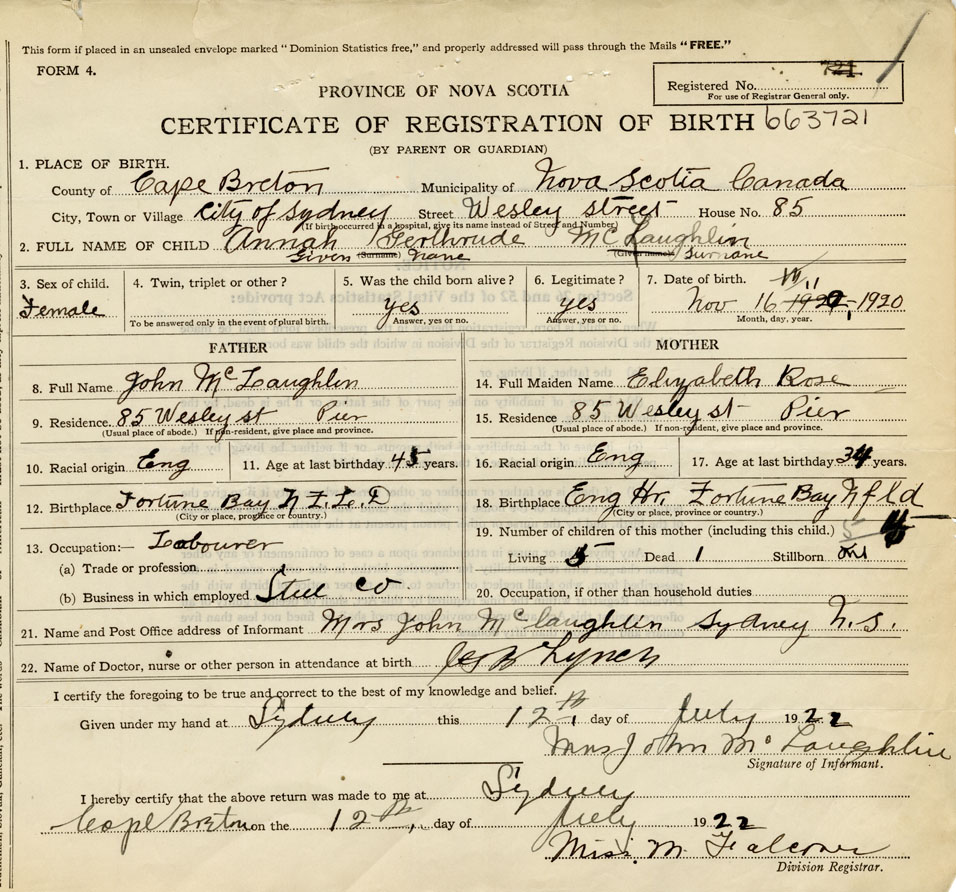 This form if placed in an unsealed envelope marked "Dominion Statistics free," and properly addressed will pass through the Mails "FREE."
FORM 4.
PROVINCE OF NOVA SCOTIA
Registered No. 721
For use of Registrar General only.
CERTIFICATE OF REGISTRATION OF BIRTH 663721
(BY PARENT OR GUARDIAN)
1. PLACE OF BIRTH.
County of Cape Breton Municipality of Nova Scotia Canada
City, Town or Village City of Sydney Street Wesley street House No. 85
(If birth occurred in a hospital, give its name instead of Street and Number)
2. FULL NAME OF CHILD Annah Gerthrude McLaughlin
Given (Surname) Name (Given name) Surname
3. Sex of child. 4. Twin, triplet or other? 5. Was the child born alive? 6. Legitimate? 7. Date of birth.
Female yes yes Nov 16 1920
To be answered only in the event of plural birth. Answer, yes or no. Answer, yes or no. Month, day, year.
FATHER MOTHER
8. Full Name John McLaughlin 14. Full Maiden Name Elizabeth Rose
9. Residence 85 Wesley st Pier 15. Residence 85 Wesley st- Pier
(Usual place of abode.) If non-resident, give place and province. (Usual place of abode.) If non-resident, give place and province.
10. Racial origin Eng 11. Age at last birthday 45 years. 16. Racial origin Eng 17. Age at last birthday 34 years.
12. Birthplace Fortune Bay 18. Birthplace Eng Hr. Fortune Bay Nfld
(City or place, province or country.) (City or place, province or country.)
13. Occupation:— Labourer 19. Number of children of this mother (including this child.) 5
(a) Trade or profession Living 5 Dead 1 Stillborn
(b) Business in which employed Steel Co 20. Occupation, if other than household duties
21. Name and Post Office address of Informant Mrs John McLaughlin Sydney N.S.
22. Name of Doctor, nurse or other person in attendance at birth Lynch
I certify the foregoing to be true and correct to the best of my knowledge and belief.
Given under my hand at Sydney this 12th day of July 1922
Mrs John McLaughlin
Signature of Informant.
I hereby certify that the above return was made to me at Sydney
Cape Breton on the 12th day of July 1922
Miss. M. Falconer
Division Registrar.